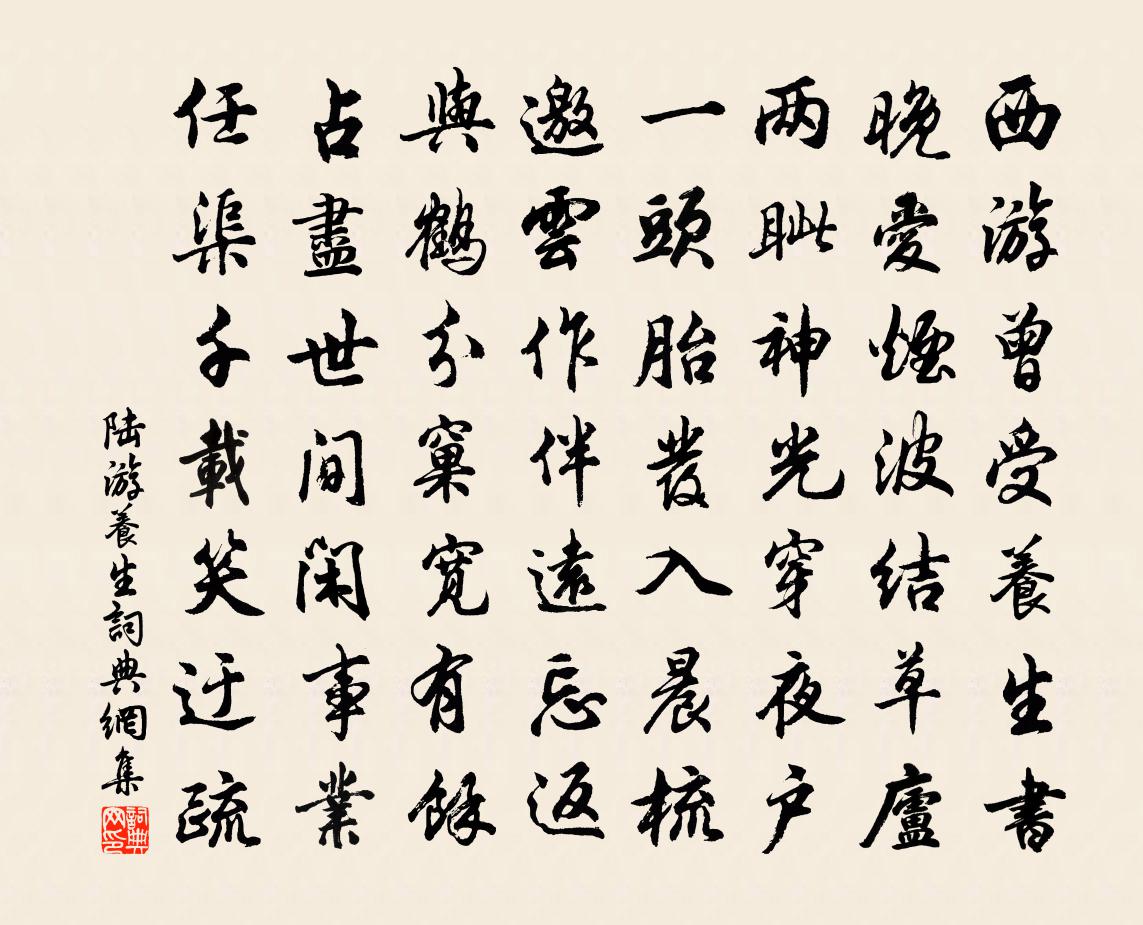 西游曾受養生書
晚愛煙波结草廬
两眦神光穿夜户
一頭胎發入晨梳
邀雲作伴遠忘返
與鶴分窠寬有餘
占盡世間閑事業
任渠千載笑迂疏
陸游養生詞典網集
詞典网印